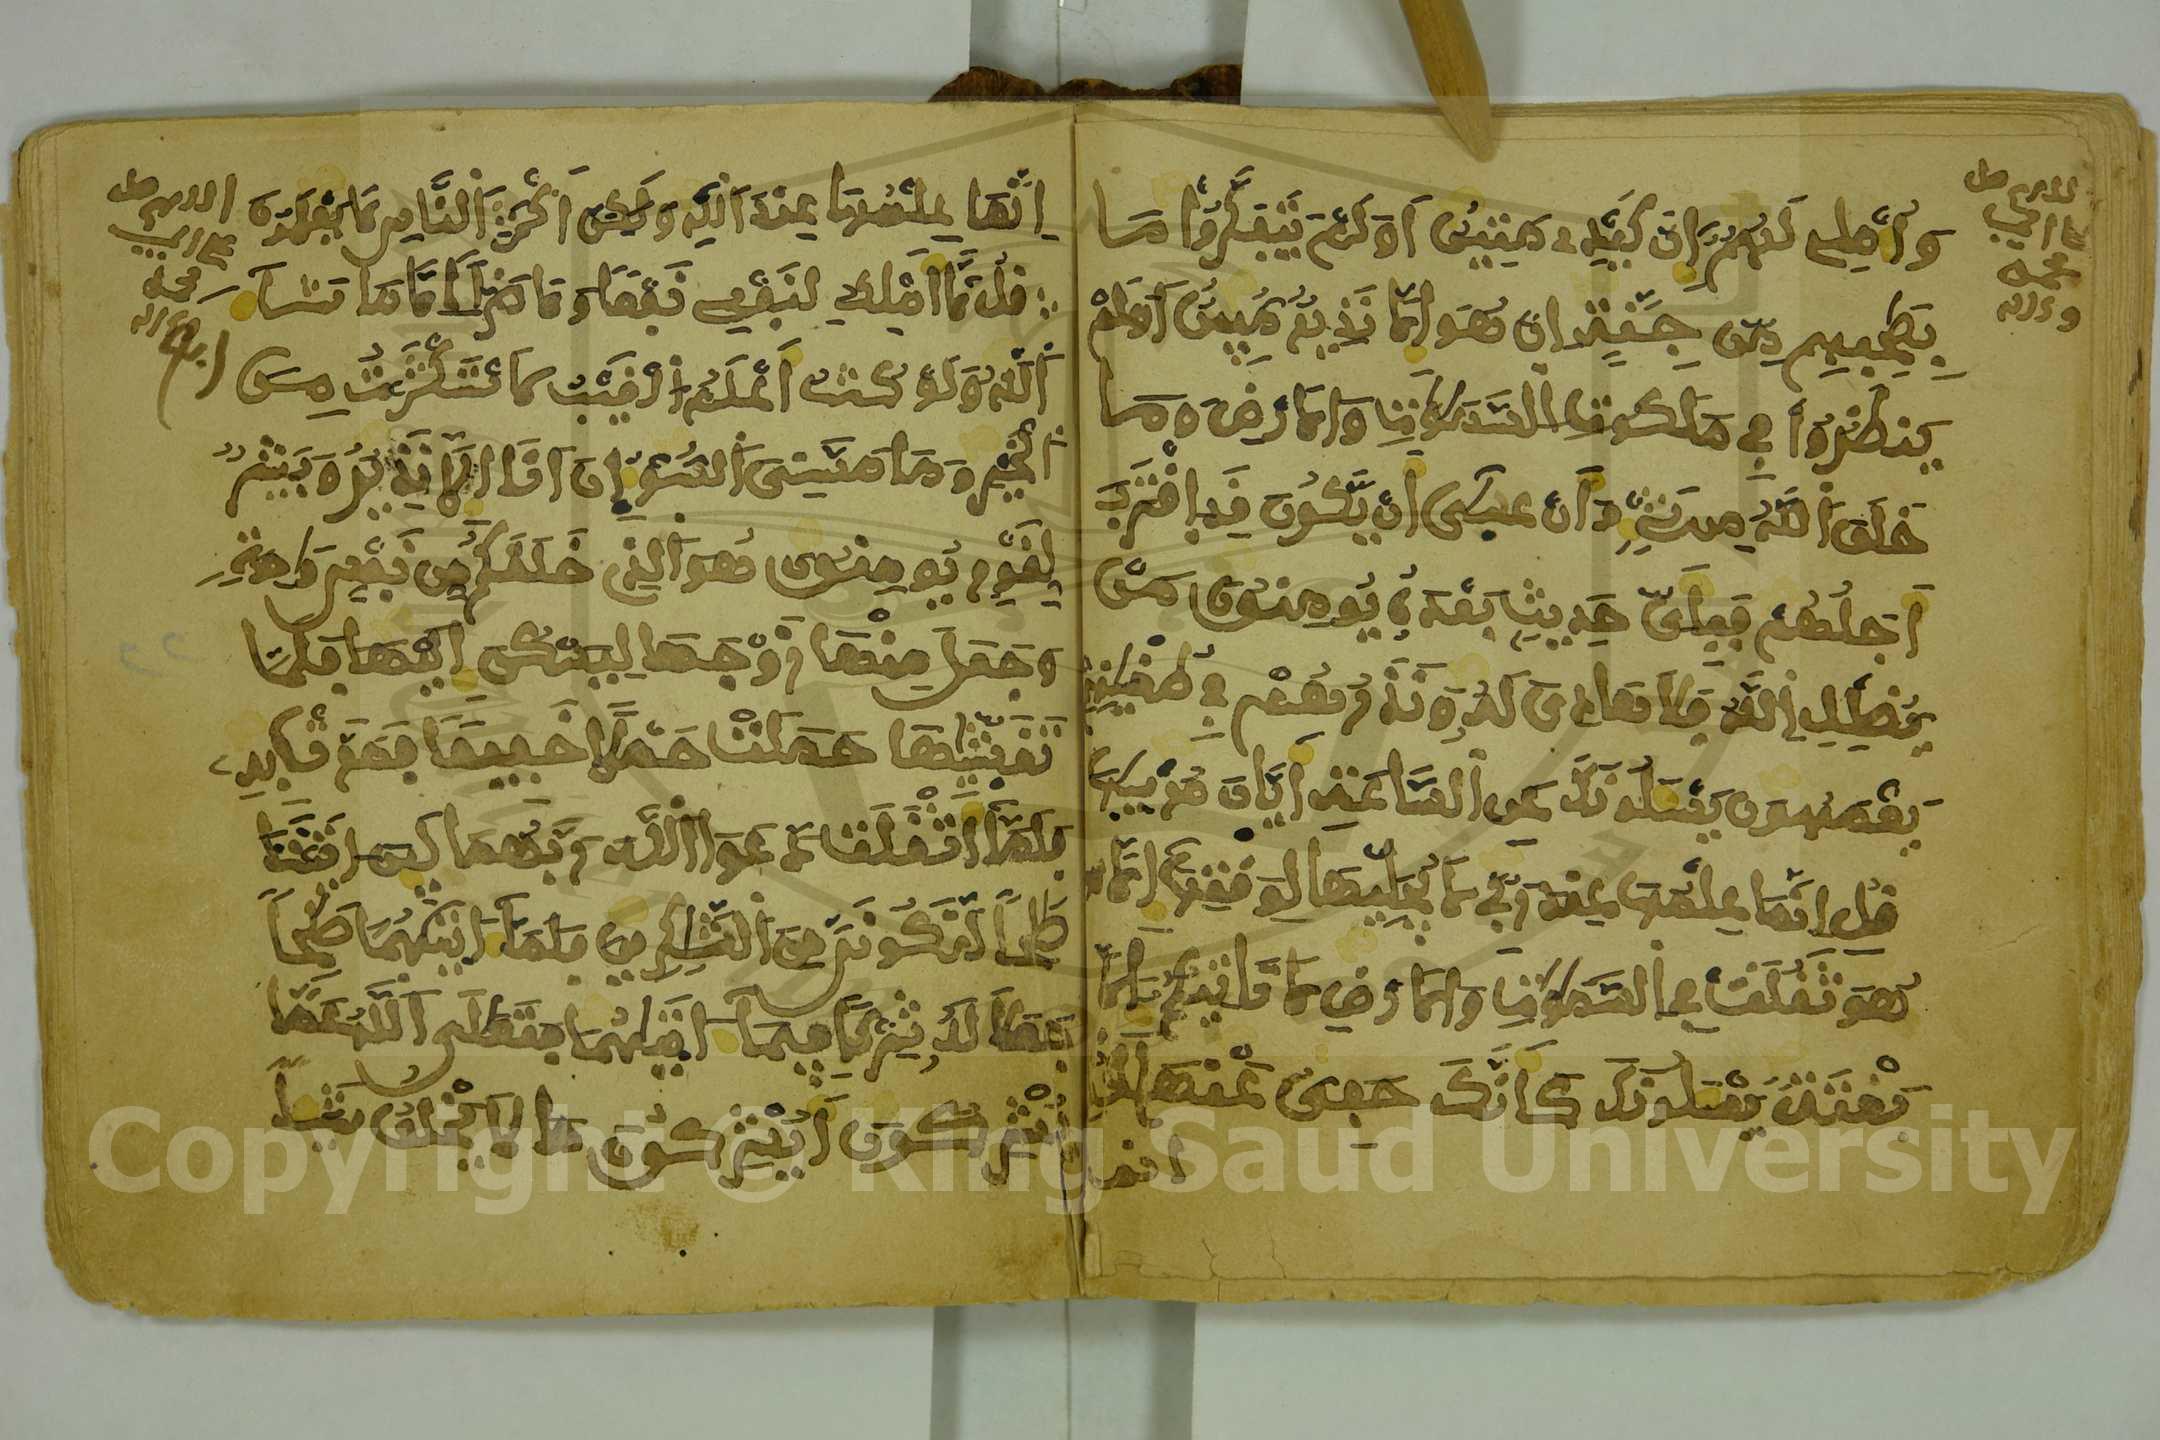 اللهم صل
على النبي
محمد
وءاله
وأملي لهم إن كيدي متين أولم يتفكروا ما
بصاحبهم من جنة إن هو إلا نذير مبين أولم
ينظروا في ملكوت السموت والارض وما
خلق الله من شيء وأن عسى أن يكون قد اقترب
أجلهم فبأي حديث بعده يومنون من
يضلل الله فلا هادي له ونذرهم في طغينهم
يعمهون يسئلونك عن الساعة أيان مرسيها
قل إنما علمها عند ربي لا يجليها لوقتها إلا
هو ثقلت في السموت والارض لا تأتيكم إلا
بغتة يسئلونك كأنك حفي عنها قل
انما
إنها علمها عند الله ولكن أكثر الناس لا يعلمون
قل لا أملك لنفسي نفعا ولا ضرا إلا ما شاء
الله ولو كنت أعلم الغيب لاستكثرت من
الخير وما مسني السوء إن أنا إلا نذير وبشير
لقوم يومنون هو الذي خلقكم من نفس واحدة
وجعل منها زوجها ليسكن إليها فلما
تغشيها حملت حملا خفيفا فمرت به
فلما أثقلت دعوا الله ربهما لين اتيتنا
صلحا لنكونن من الشكرين فلما اتيهما صلحا
جعلا له شركا فيما اتيهما فتعلى الله عما
يشركون أيشركون ما لا يخلق شيئا
اللهم صل
على النبي
محمد
وءاله